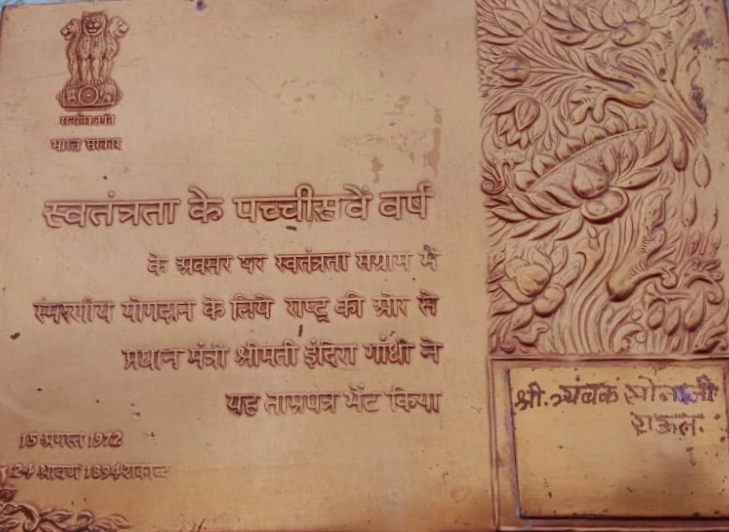 सत्यमेव जयते
भारत सरकार
स्वतंत्रता के पच्चीसवें वर्ष
के अवसर पर स्वतंत्रता संग्राम में
स्मरणीय योगदान के लिये राष्ट्र की ओर से
प्रधान मंत्री श्रीमती इंदिरा गाँधी ने
यह ताम्रपत्र भेंट किया
15 अगस्त 1972
24 श्रावण 1894 शकाब्द
श्री. त्र्यंबक सोनाजी
राऊल.